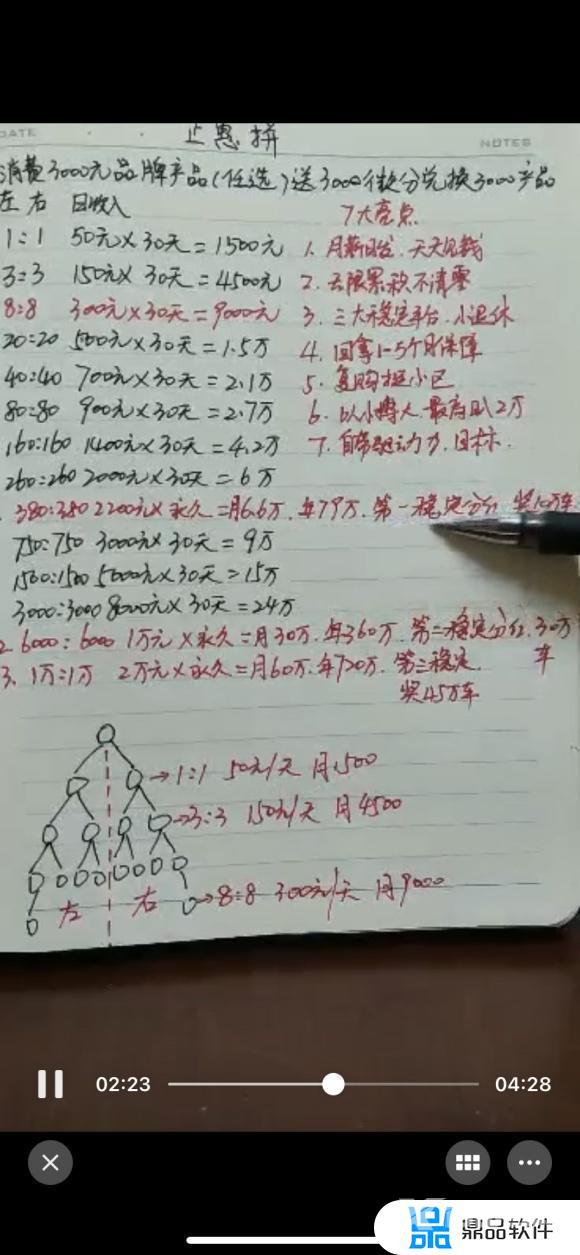 DATE
NOTES
正惠拼
消费3000元品牌产品(任选)送3000积分兑换3000产品
左 右 日收入
7大亮点
1:1 50元×30天=1500元
1. 月薪日发.天天见钱
3:3 150元×30天=4500元
2. 无限累积不清零
8:8 300元×30天=9000元
3. 三大稳定平台.小退休
20:20 500元×30天=1.5万
4. 回拿1-5个月保障
40:40 700元×30天=2.1万
5. 复购挂小区
80:80 900元×30天=2.7万
6. 以小博大.最高日入2万
160:160 1400元×30天=4.2万
7. 自带驱动力.目标.
260:260 2000元×30天=6万
380:380 2200元×永久=月6.6万.年79万.第一稳定分红 奖10万车
750:750 3000元×30天=9万
1500:1500 5000元×30天=15万
3000:3000 8000元×30天=24万
2. 6000:6000 1万元×永久=月30万.年360万.第二稳定分红.30万车
3. 1万:1万 2万元×永久=月60万.年720万.第三稳定.
奖45万车
→1:1 50元/天 月1500
→3:3 150元/天 月4500
左 右 →8:8 300元/天 月9000
02:23
04:28
鼎品软件